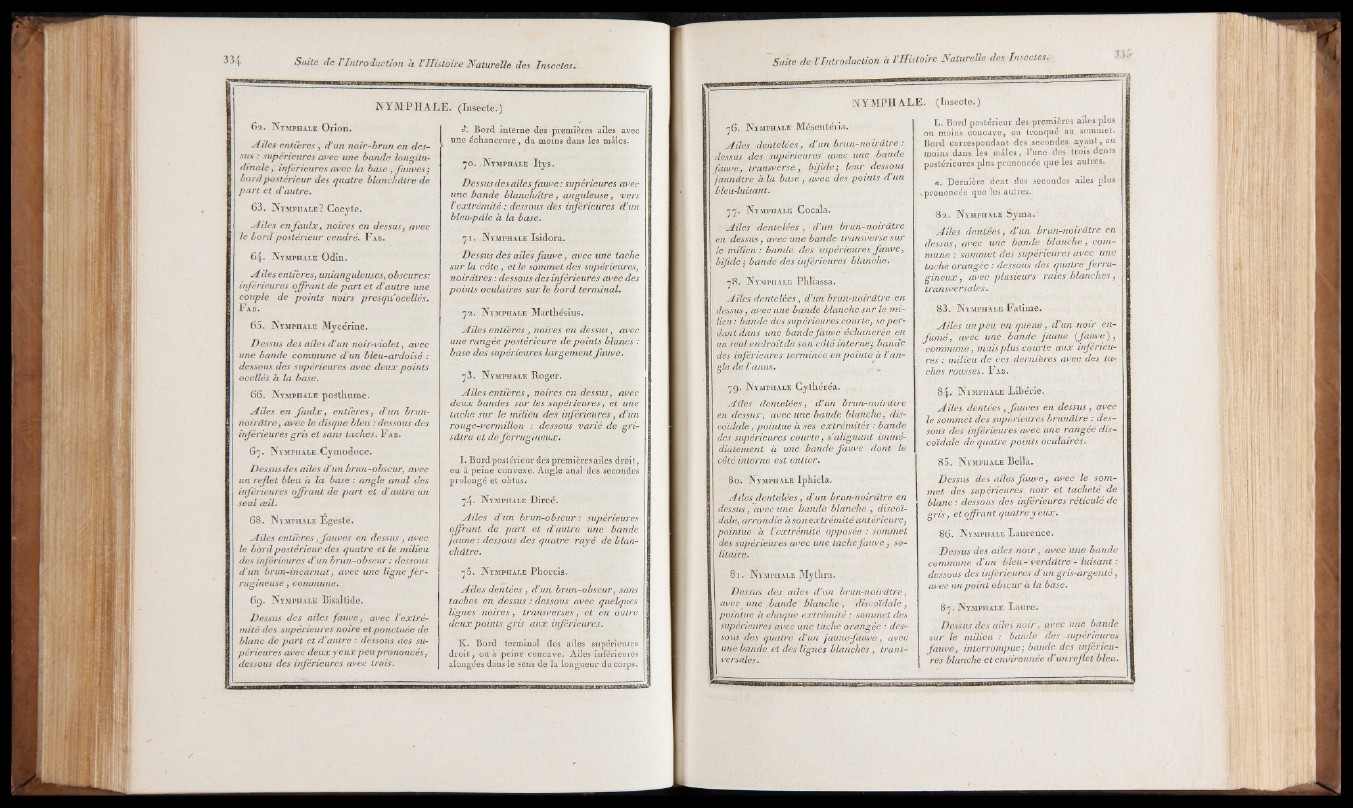 334
Suite de l'Introduction à l'Histoire Naturelle des Insectes.
NYMPHALE. (Insecte.)
62. Nymphale Orion.
Ailes entières, d'un noir-brun en des-
sus : supérieures avec une bande longitu-
dinale, inférieures avec la base, fauves;
bord postérieur des quatre blanchâtre de
part et d'autre.
63. Nymphale? Cocyte.
Ailes en faulx, noires en dessus, avec
le bord postérieur cendré. Fab.
64. Nymphale Odin.
Ailes entières, unianguleuses, obscures:
inférieures offrant de part et d'autre une
couple de points noirs presqu'ocellés.
Fab.
65. Nymphale Mycérine.
Dessus des ailes d'un noir-violet, avec
une bande commune d'un bleu-ardoisé :
dessous des supérieures avec deux points
ocellés à la base.
66. Nymphale posthume.
Ailes en faulx, entières, d'un brun-
noirâtre, avec le disque bleu : dessous des
inférieures gris et sans taches. Fab.
67. Nymphale Cymodoce.
Dessus des ailes d'un brun-obscur, avec
un reflet bleu à la base : angle anal des
inférieures offrant de part et d'autre un
seul œil.
68. Nymphale Égeste.
Ailes entières, fauves en dessus, avec
le bord postérieur des quatre et le milieu
des inférieures d'un brun-obscur : dessous
d'un brun-incarnat, avec une ligne fer-
rugineuse, commune.
69. Nymphale Bisaltide.
Dessus des ailes fauve, avec l'extré-
mité des supérieures noire et ponctuée de
blanc de part et d'autre : dessous des su-
périeures avec deux yeux peu prononcés,
dessous des inférieures avec trois.
Bord interne des premières ailes avec
une échancrure, du moins dans les mâles.
70. Nymphale Itys.
Dessus des ailes fauve : supérieures avec
une bande blanchâtre, anguleuse, vers
l'extrémité : dessous des inférieures d'un
bleu-pâle à la base.
71. Nymphale Isidora.
Dessus des ailes fauve, avec une tache
sur la côte, et le sommet des supérieures,
noirâtres : dessous des inférieures avec des
points oculaires sur le bord terminal.
72. Nymphale Marthésius.
Ailes entières, noires en dessus, avec
une rangée postérieure de points blancs :
base des supérieures largement fauve.
73. Nymphale Roger.
Ailes entières, noires en dessus, avec
deux bandes sur les supérieures, et une
tache sur le milieu des inférieures, d'un
rouge-vermillon : dessous varié de gri-
sâtre et de ferrugineux.
I. Bord postérieur des premières ailes droit,
ou à peine convexe. Angle anal des secondes
prolongé et obtus.
74. Nymphale Dircé.
Ailes d'un brun-obscur : supérieures
offrant de part et d'autre une bande
jaune : dessous des quatre rayé de blan-
châtre.
75. Nymphale Phorcis.
Ailes dentées, d'un brun-obscur, sans
taches en dessus : dessous avec quelques
lignes noires, transverses, et en outre
deux points gris aux inférieures.
K. Bord terminal des ailes supérieures
droit, ou à peine concave. Ailes inférieures
alongées dans le sens de la longueur du corps.
Suite de l'Introduction à l'Histoire Naturelle des Insectes.
335
NYMPHALE. (Insecte.)
76. Nymphale Mésentéria.
Ailes dentelées, d'un brun-noirâtre :
dessus des supérieures avec une bande
fauve, transverse, bifide; leur dessous
jaunâtre à la base, avec des points d'un
bleu-luisant.
77. Nymphale Cocala.
Ailes dentelées, d'un brun-noirâtre
en dessus, avec une bande transverse sur
le milieu : bande des supérieures fauve,
bifide; bande des inférieures blanche.
78. Nymphale Phliassa.
Ailes dentelées, d'un brun-noirâtre en
dessus, avec une bande blanche sur le mi-
lieu : bande des supérieures courte, se per-
dant dans une bande fauve échancrée en
un seul endroit de son côté interne; bande
des inférieures terminée en pointe à l'an-
gle de l'anus.
79. Nymphale Cythéréa.
Ailes dentelées, d'un brun-noirâtre
en dessus, avec une bande blanche, dis-
coïdale, pointue à ses extrémités : bande
des supérieures courte, s'alignant immé-
diatement à une bande fauve dont le
côté interne est entier.
80. Nymphale Iphicla.
Ailes dentelées, d'un brun-noirâtre en
dessus, avec une bande blanche, discoï-
dale, arrondie à son extrémité antérieure,
pointue à l'extrémité opposée : sommet
des supérieures avec une tache fauve, so-
litaire.
81. Nymphale Mythra.
Dessus des ailes d'un brun-noirâtre,
avec une bande blanche, discoïdale,
pointue à chaque extrémité : sommet des
supérieures avec une tache orangée : des-
sous des quatre d'un jaune-fauve, avec
une bande et des lignes blanches, trans-
versales.
L. Bord postérieur des premières ailes plus
ou moins concave, ou tronqué au sommet.
Bord correspondant des secondes ayant, au
moins dans les mâles, l'une des trois dents
postérieures plus prononcée que les autres.
a. Dernière dent des secondes ailes plus
prononcée que les autres.
82. Nymphale Syma.
Ailes dentées, d'un brun-noirâtre en
dessus, avec une bande blanche, com-
mune : sommet des supérieures avec une
tache orangée : dessous des quatre ferru-
gineux, avec plusieurs raies blanches,
transversales.
83. Nymphale Fatime.
Ailes un peu en queue, d'un noir en-
fumé, avec une bande jaune (fauve),
commune, mais plus courte aux inférieu-
res : milieu de ces dernières avec des ta-
ches rousses. Fab.
84. Nymphale Libérie.
Ailes dentées, fauves en dessus, avec
le sommet des supérieures brunâtre : des-
sous des inférieures avec une rangée dis-
coïdale de quatre points oculaires.
85. Nymphale Bella.
Dessus des ailes fauve, avec le som-
met des supérieures noir et tacheté de
blanc : dessous des inférieures réticulé de
gris, et offrant quatre yeux.
86. Nymphale Laurence.
Dessus des ailes noir, avec une bande
commune d'un bleu-verdâtre-luisant :
dessous des inférieures d'un gris-argenté,
avec un point obscur à la base.
87. Nymphale Laure.
Dessus des ailes noir, avec une bande
sur le milieu : bande des supérieures
fauve, interrompue; bande des inférieu-
res blanche et environnée d'un reflet bleu.